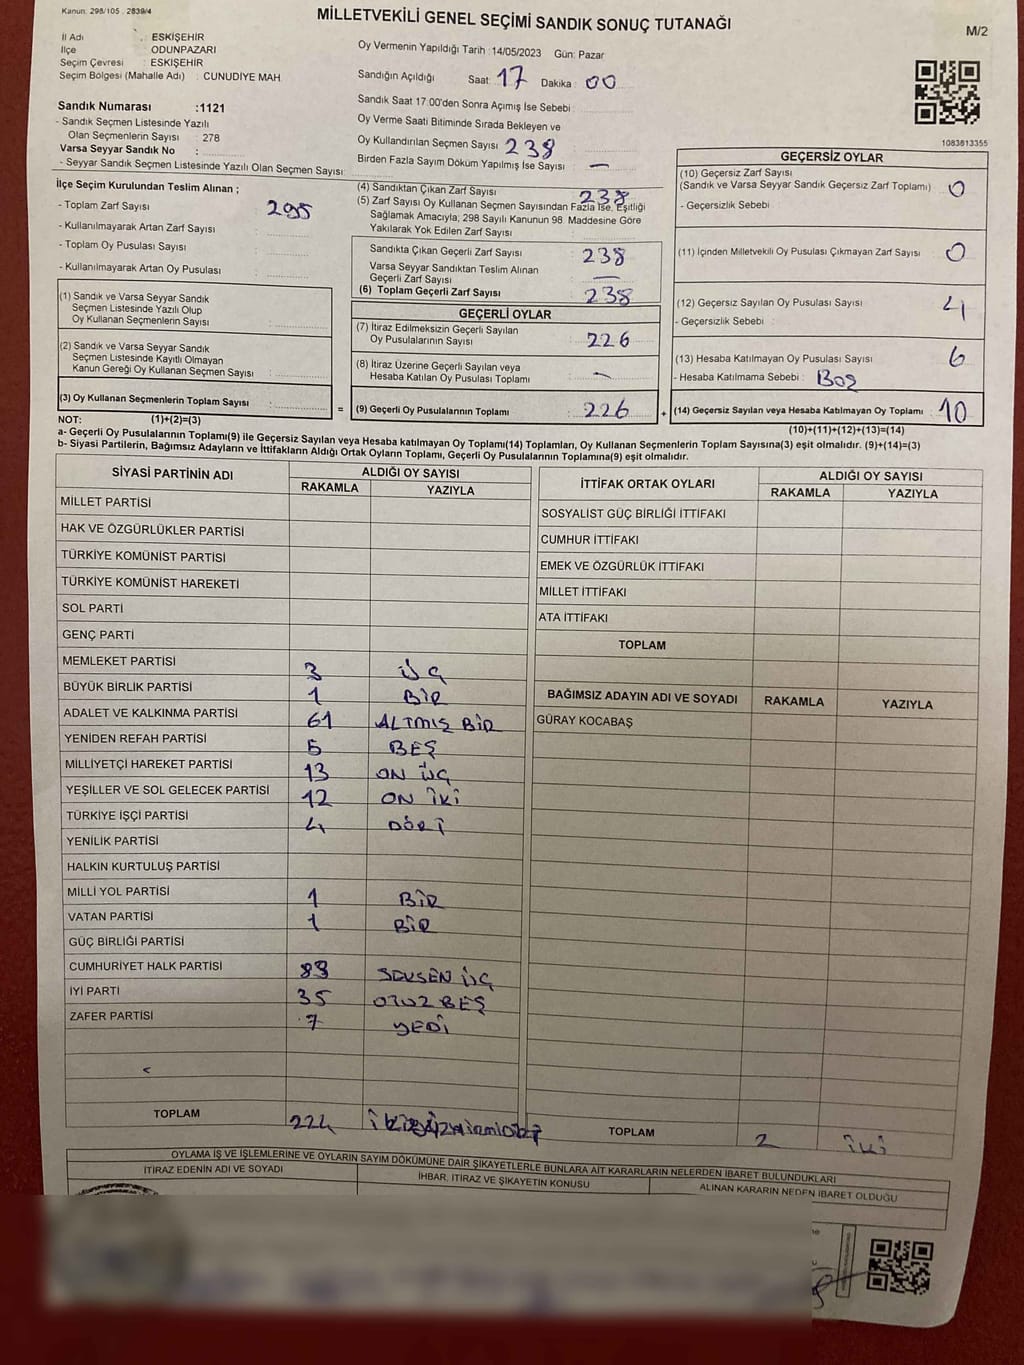 Kanun: 298/105 . 2839/4
MİLLETVEKİLİ GENEL SEÇİMİ SANDIK SONUÇ TUTANAĞI
M/2
İl Adı : ESKİŞEHİR
İlçe ODUNPAZARI
Seçim Çevresi : ESKİŞEHİR
Seçim Bölgesi (Mahalle Adı) : CUNUDİYE MAH
Sandık Numarası :1121
- Sandık Seçmen Listesinde Yazılı
Olan Seçmenlerin Sayısı : 278
Varsa Seyyar Sandık No :
- Seyyar Sandık Seçmen Listesinde Yazılı Olan Seçmen Sayısı:
Oy Vermenin Yapıldığı Tarih :14/05/2023 Gün: Pazar
Sandığın Açıldığı Saat: 17 Dakika : 00
Sandık Saat 17.00'den Sonra Açımış İse Sebebi :
Oy Verme Saati Bitiminde Sırada Bekleyen ve
Oy Kullandırılan Seçmen Sayısı : 238
Birden Fazla Sayım Döküm Yapılmış İse Sayısı : —
1083613355
İlçe Seçim Kurulundan Teslim Alınan ;
- Toplam Zarf Sayısı : 295
- Kullanılmayarak Artan Zarf Sayısı :
- Toplam Oy Pusulası Sayısı :
- Kullanılmayarak Artan Oy Pusulası :
(1) Sandık ve Varsa Seyyar Sandık
Seçmen Listesinde Yazılı Olup
Oy Kullanan Seçmenlerin Sayısı :
(2) Sandık ve Varsa Seyyar Sandık
Seçmen Listesinde Kayıtlı Olmayan
Kanun Gereği Oy Kullanan Seçmen Sayısı :
(3) Oy Kullanan Seçmenlerin Toplam Sayısı : =
(4) Sandıktan Çıkan Zarf Sayısı : 238
(5) Zarf Sayısı Oy Kullanan Seçmen Sayısından Fazla İse, Eşitliği
Sağlamak Amacıyla; 298 Sayılı Kanunun 98. Maddesine Göre
Yakılarak Yok Edilen Zarf Sayısı :
Sandıkta Çıkan Geçerli Zarf Sayısı : 238
Varsa Seyyar Sandıktan Teslim Alınan
Geçerli Zarf Sayısı : —
(6) Toplam Geçerli Zarf Sayısı : 238
GEÇERLİ OYLAR
(7) İtiraz Edilmeksizin Geçerli Sayılan
Oy Pusulalarının Sayısı : 226
(8) İtiraz Üzerine Geçerli Sayılan veya
Hesaba Katılan Oy Pusulası Toplamı : —
(9) Geçerli Oy Pusulalarının Toplamı : 226 +
GEÇERSİZ OYLAR
(10) Geçersiz Zarf Sayısı
(Sandık ve Varsa Seyyar Sandık Geçersiz Zarf Toplamı) : 0
- Geçersizlik Sebebi :
(11) İçinden Milletvekili Oy Pusulası Çıkmayan Zarf Sayısı : 0
(12) Geçersiz Sayılan Oy Pusulası Sayısı : 4
- Geçersizlik Sebebi :
(13) Hesaba Katılmayan Oy Pusulası Sayısı : 6
- Hesaba Katılmama Sebebi : BOŞ
(14) Geçersiz Sayılan veya Hesaba Katılmayan Oy Toplamı : 10
NOT: (1)+(2)=(3)
(10)+(11)+(12)+(13)=(14)
a- Geçerli Oy Pusulalarının Toplamı(9) ile Geçersiz Sayılan veya Hesaba katılmayan Oy Toplamı(14) Toplamları, Oy Kullanan Seçmenlerin Toplam Sayısına(3) eşit olmalıdır. (9)+(14)=(3)
b- Siyasi Partilerin, Bağımsız Adayların ve İttifakların Aldığı Ortak Oyların Toplamı, Geçerli Oy Pusulalarının Toplamına(9) eşit olmalıdır.
SİYASİ PARTİNİN ADI ALDIĞI OY SAYISI
RAKAMLA YAZIYLA
MİLLET PARTİSİ
HAK VE ÖZGÜRLÜKLER PARTİSİ
TÜRKİYE KOMÜNİST PARTİSİ
TÜRKİYE KOMÜNİST HAREKETİ
SOL PARTİ
GENÇ PARTİ
MEMLEKET PARTİSİ 3 ÜÇ
BÜYÜK BİRLİK PARTİSİ 1 BİR
ADALET VE KALKINMA PARTİSİ 61 ALTMIŞ BİR
YENİDEN REFAH PARTİSİ 5 BEŞ
MİLLİYETÇİ HAREKET PARTİSİ 13 ON ÜÇ
YEŞİLLER VE SOL GELECEK PARTİSİ 12 ON İKİ
TÜRKİYE İŞÇİ PARTİSİ 4 DÖRT
YENİLİK PARTİSİ
HALKIN KURTULUŞ PARTİSİ
MİLLİ YOL PARTİSİ 1 BİR
VATAN PARTİSİ 1 BİR
GÜÇ BİRLİĞİ PARTİSİ
CUMHURİYET HALK PARTİSİ 83 SEKSEN ÜÇ
İYİ PARTİ 35 OTUZ BEŞ
ZAFER PARTİSİ 7 YEDİ
TOPLAM 224
İTTİFAK ORTAK OYLARI ALDIĞI OY SAYISI
RAKAMLA YAZIYLA
SOSYALİST GÜÇ BİRLİĞİ İTTİFAKI
CUMHUR İTTİFAKI
EMEK VE ÖZGÜRLÜK İTTİFAKI
MİLLET İTTİFAKI
ATA İTTİFAKI
TOPLAM
BAĞIMSIZ ADAYIN ADI VE SOYADI RAKAMLA YAZIYLA
GÜRAY KOCABAŞ
TOPLAM 2 İKİ
OYLAMA İŞ VE İŞLEMLERİNE VE OYLARIN SAYIM DÖKÜMÜNE DAİR ŞİKAYETLERLE BUNLARA AİT KARARLARIN NELERDEN İBARET BULUNDUKLARI
İTİRAZ EDENİN ADI VE SOYADI İHBAR, İTİRAZ VE ŞİKAYETİN KONUSU ALINAN KARARIN NEDEN İBARET OLDUĞU